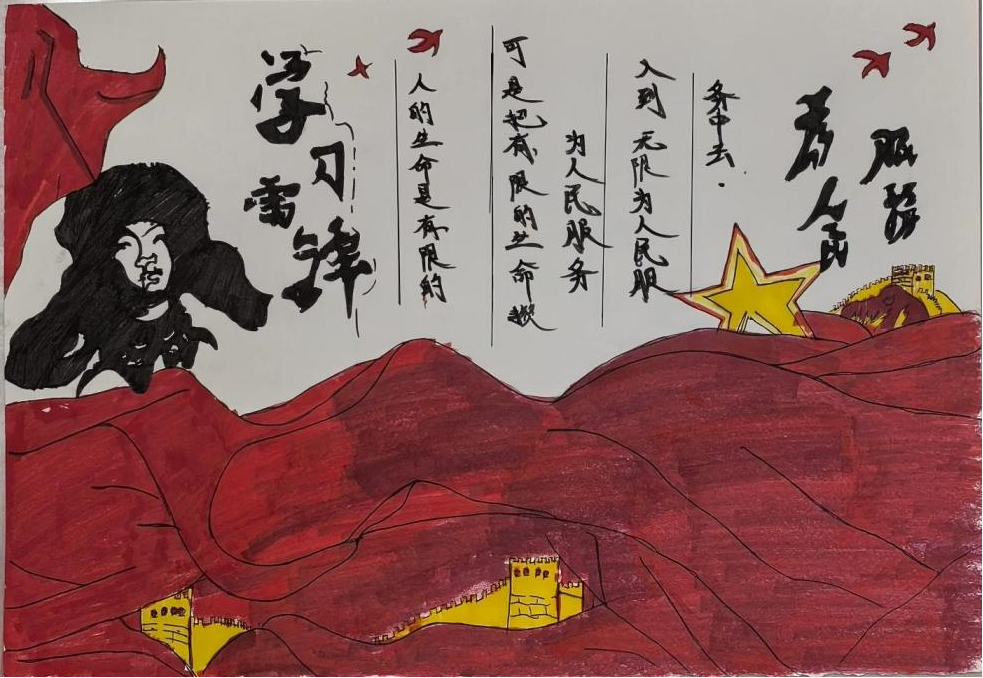 学习
雷锋
人的生命是有限的
可是把有限的生命
为人民服务
入到无限为人民服
务中去.
為人民
服務